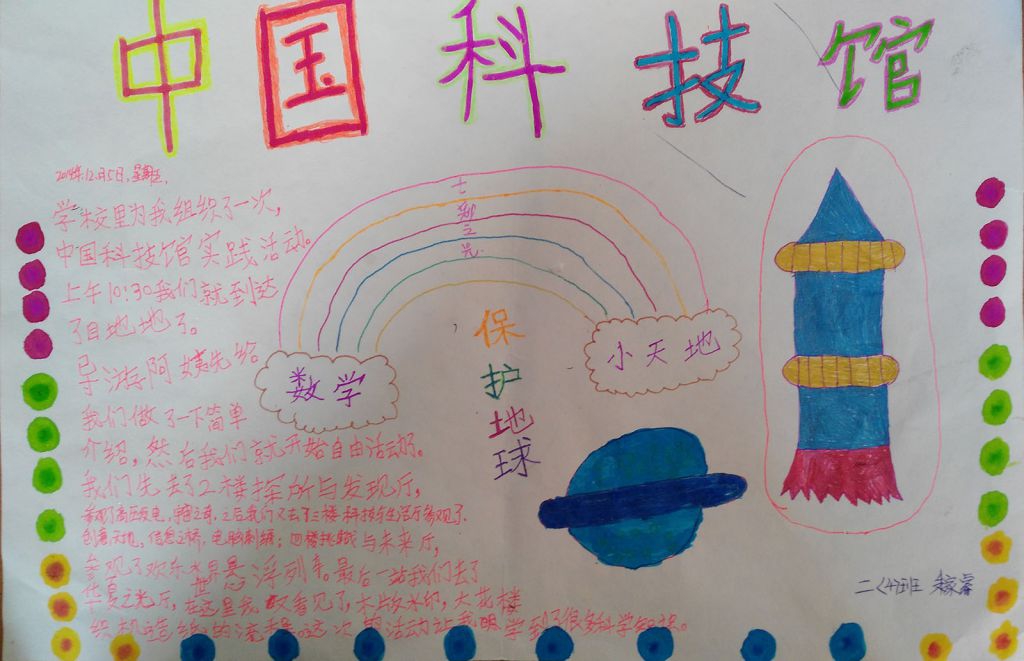 中国科技馆
2014年12月5日,星期五,
学校里为我组织了一次,
中国科技馆实践活动。
上午10:30我们就到达
了目地地了。
导游阿姨先给
我们做了一下简单
介绍,然后我们就开始自由活动了。
我们先去了2楼探所与发现厅,
参观了高压放电,之后我们又去了三楼科技与生活厅参观了.
创意天地,信息之桥,电脑刺绣;四楼挑战与未来厅,
参观了欢乐水世界 悬浮列车。最后一站我们去了
华夏之光厅,在这里我又看见了,木版水印,大花楼
织机造纸的流程。这次活动让我学到了很多科学知识。
七彩之光
数学
小天地
保
护
地
球
二(4)班